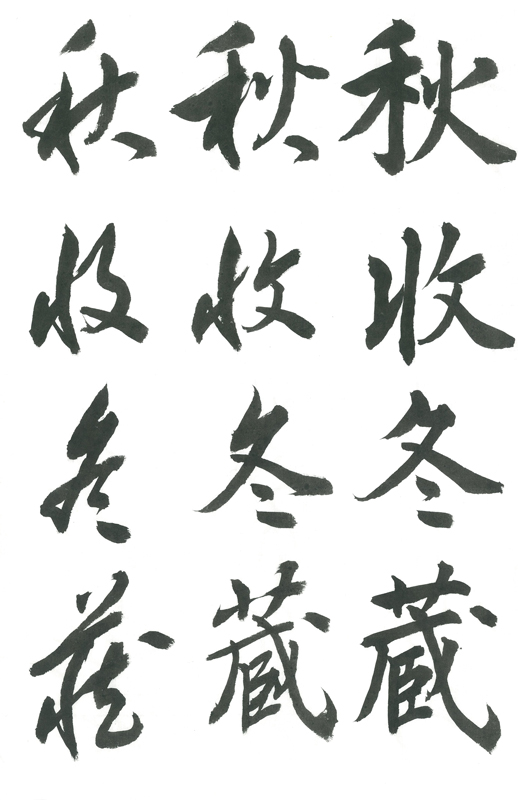 秋收冬蔵
秋收冬蔵
秋收冬蔵